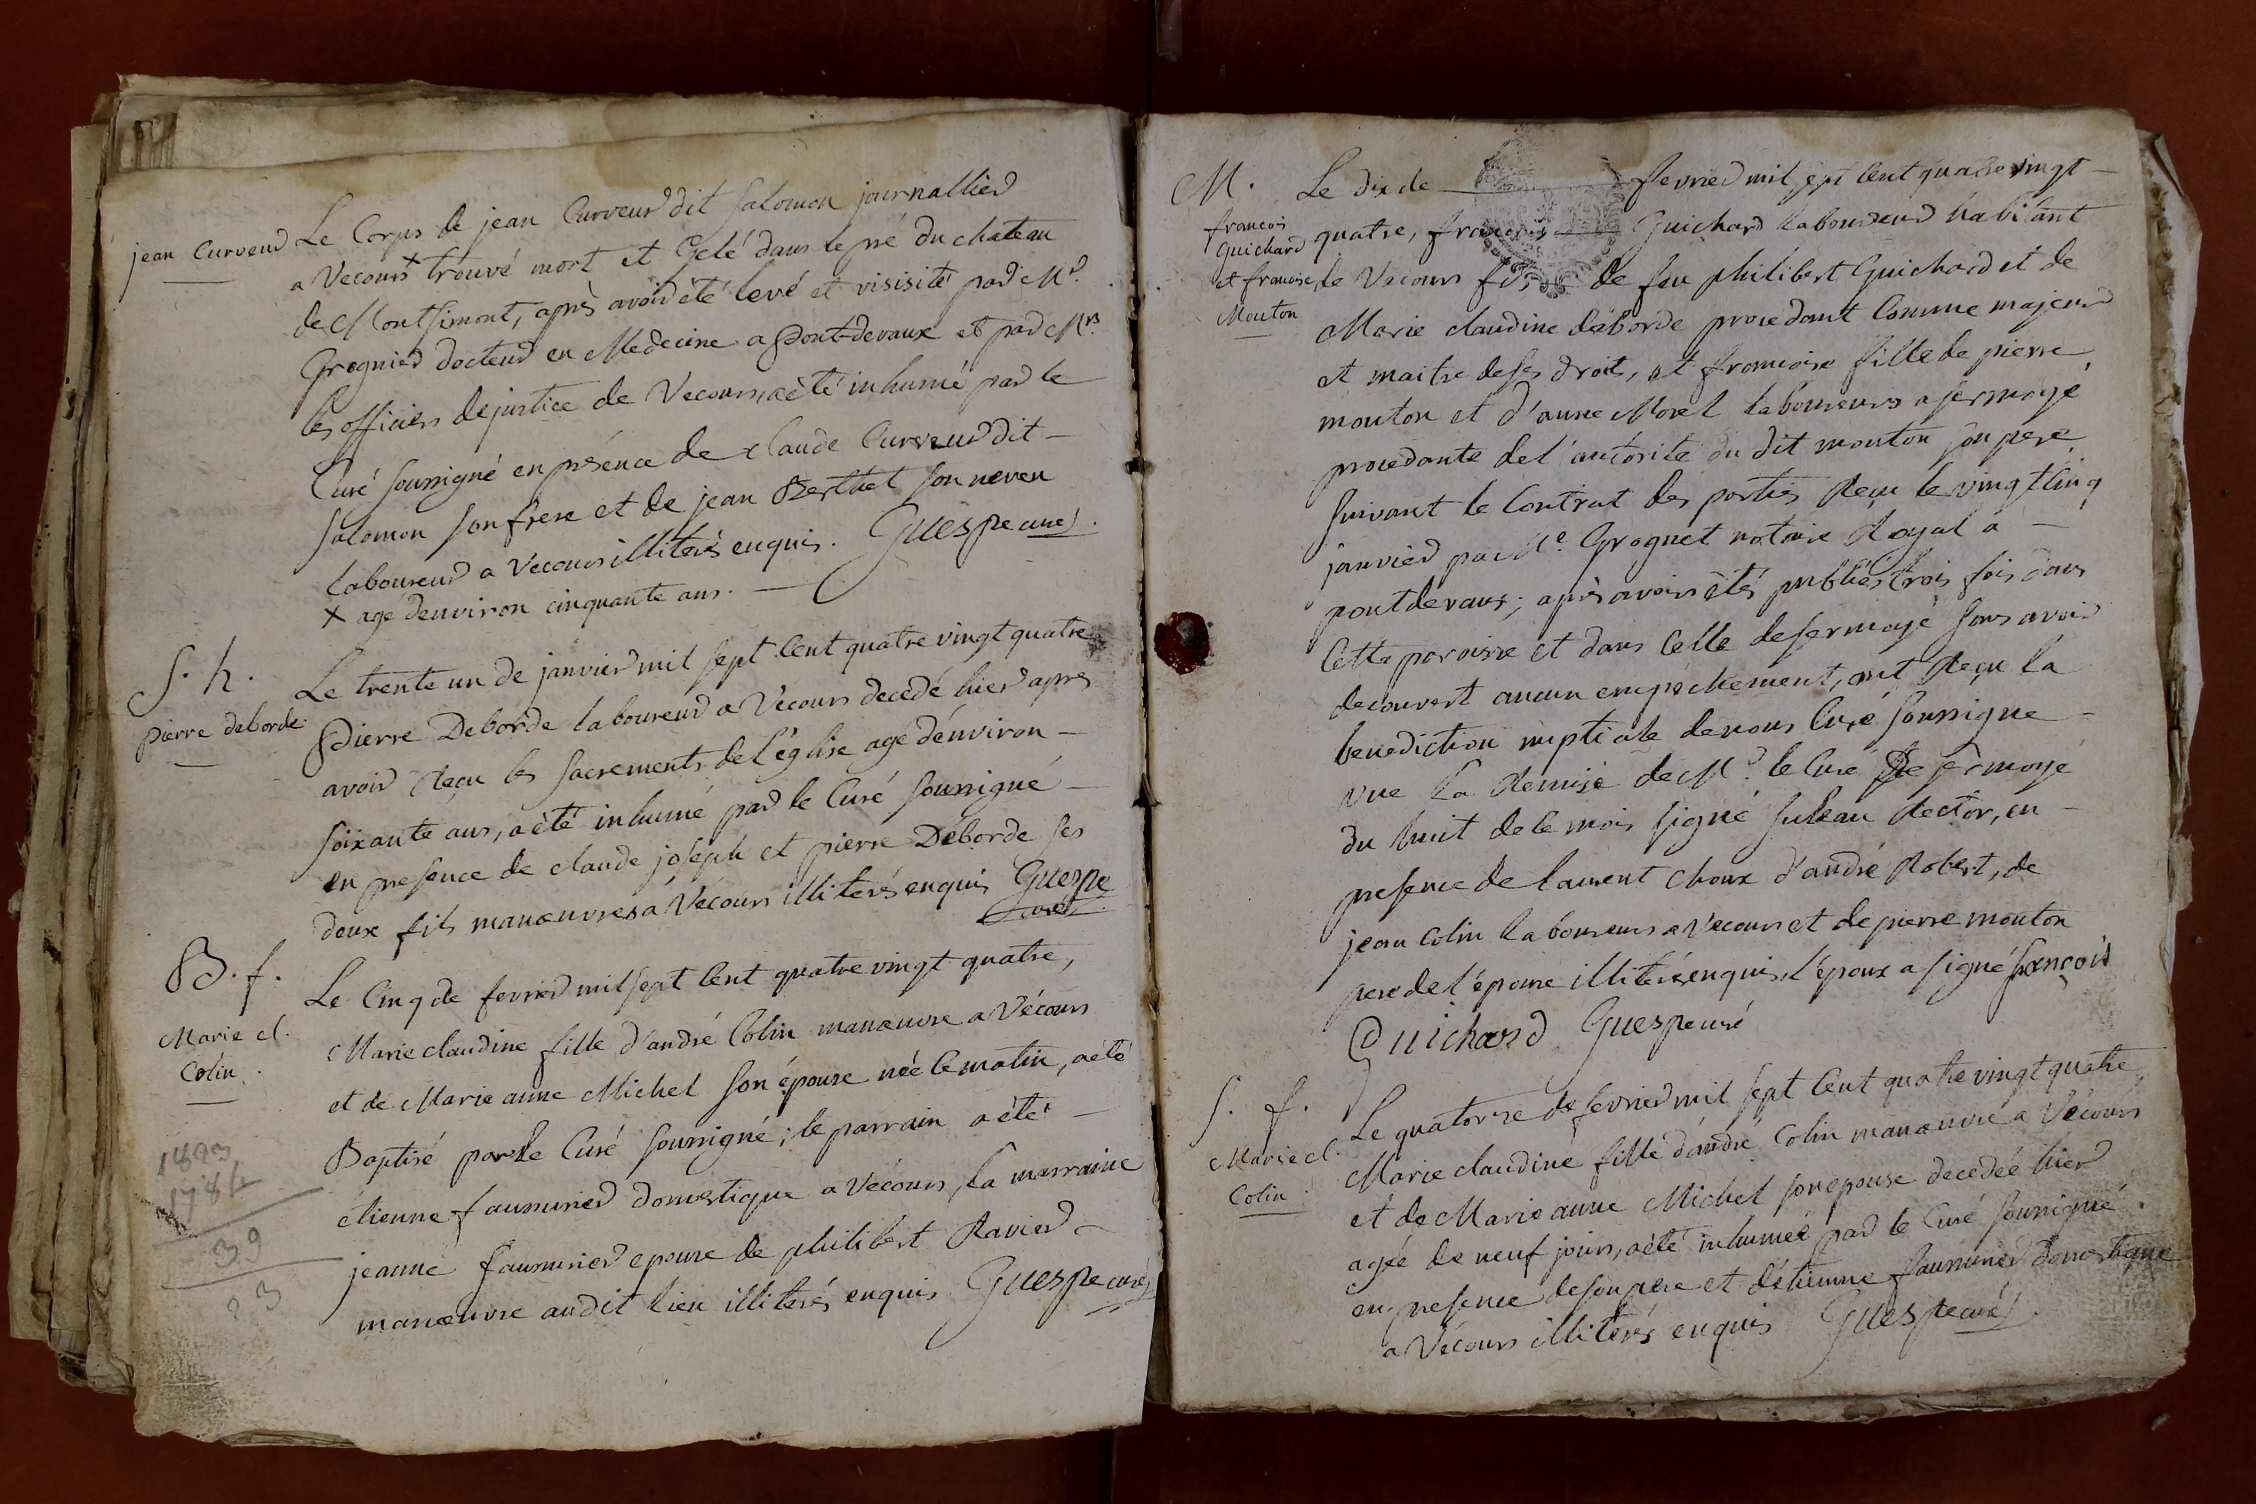 jean Curveur
Le Corps de jean Curveur dit Salomon journallier
a Vecours + trouvé mort et Gelé dans le pré du chateau
de Montsimont, après avoir été levé et visisité par Mr.
Grognier docteur en Medecine a Pont-devaux et par Mrs.
les officiers de justice de Vecours, a èté inhumé par le
Curé soussigné en présence de claude Curveur dit -
Salomon son frere et de jean Berthet son neveu
laboureur a Vecours illiterés enquis. Guespe curé.
+ age denviron cinquante ans. -
S. h.
pierre deborde
Le trente un de janvier mil sept Cent quatre vingt quatre
Pierre Deborde laboureur a Vecours decedé hier après
avoir Reçu les sacrements de l'église age d'énviron -
soixante ans, a èté inhumé par le Curé soussigné -
en presence de claude joseph et pierre Déborde ses
deux fils manœuvres a Vécours illiterés enquis Guespe
curé.
B. f.
Marie cl.
Colin.
Le Cinq de fevrier mil sept Cent quatre vingt quatre,
Marie claudine fille d'andré Colin manœuvre a Vécours
et de Marie anne Michel son épouse née le matin, a èté
Baptisé par le Curé soussigné ; le parrain a èté -
étienne faussurier domestique a Vécours, la marraine
jeanne faussurier epouse de philibert Ravier -
manœuvre audit lieu illiterés enquis Guespe curé
1823
1784
39
23
M.
francois
Guichard
et francoise
Mouton
Le dix de - fevrier mil sept Cent quatre vingt -
quatre, francois Guichard laboureur habitant
de Vecours fils de feu philibert Guichard et de
Marie claudine déborde procedant Comme majeur
et maitre de ses droits, et francoise fille de pierre
mouton et d'anne Morel laboureurs a sermoyé
procedante de l'autórité du dit mouton son pere
suivant le Contrat des parties Reçu le vingt Cinq
janvier par Me. Grognet notaire Royal a -
pontdevaux ; après avoirs étés publiés trois fois dans
Cette paroisse et dans Celle de sermoyé sans avoir
decouvert aucun empêchement, ont Reçu la
benediction nuptiale de nous Curé soussigné -
vue la Remise de Mr. le Curé De sermoyé
du huit de Ce mois signé Juleau Rector, en -
presence de laurent choux d'andré Robert, de
jean Colin laboureurs a Vecours et de pierre mouton
pere de l'épouse illiterés enquis, l'époux a signé françois
Guichard Guespe curé
S. f.
Marie cl.
Colin.
Le quatorze de fevrier mil sept Cent quatre vingt quatre
Marie claudine fille d'andré Colin manœuvre a Vécours
et de Marie anne Michel son epouse decedée hier
agée de neuf jours, a èté inhumée par le Curé soussigné.
en presence de son pere et d'étienne faussurier domestique
a Vécours illiterés enquis Guespe curé.